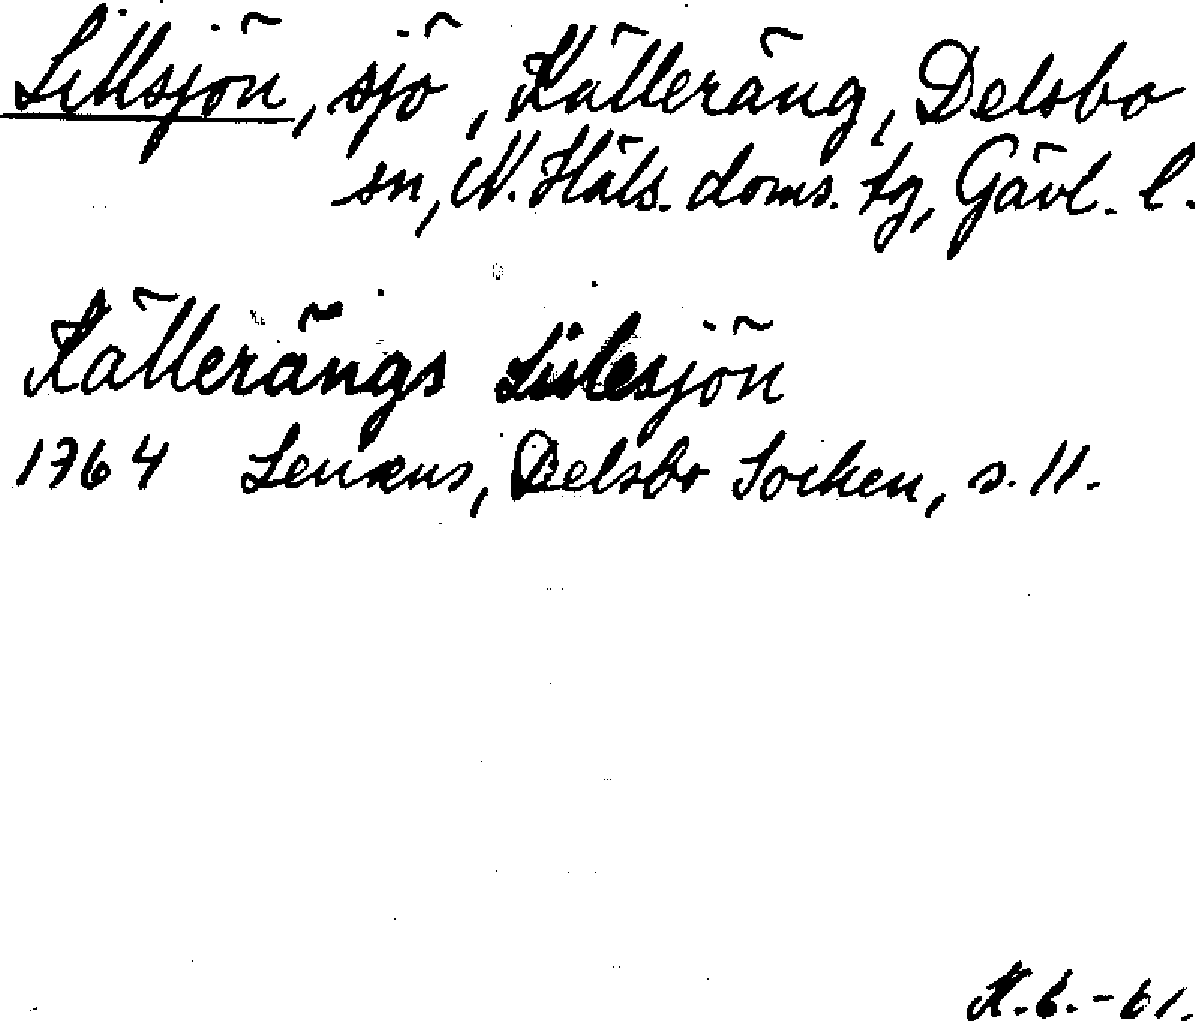 Lillsjön, sjö, Källeräng, Delsbo
sn, N. Häls. doms. tg, Gävl. l.
Källerängs Lillesjön
1764 Lenæus, Delsbo Socken, s. 11.
K.G.-61.